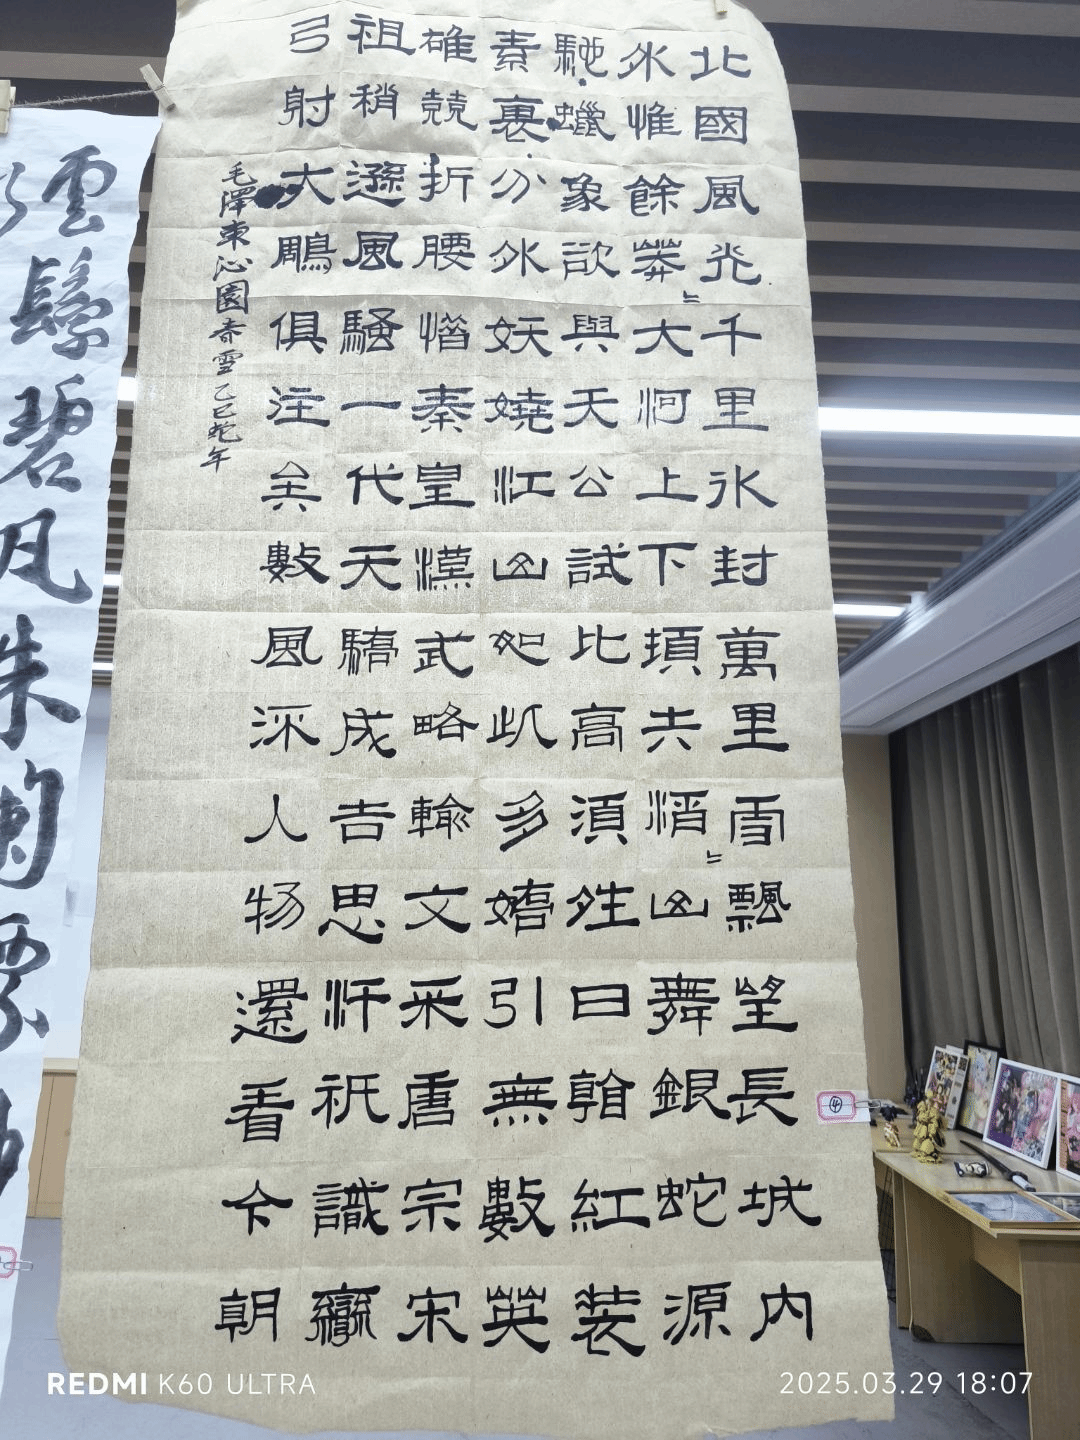 北國風光千里冰封萬里雪飄望長城内
外惟餘莽〻大河上下頓失滔〻山舞銀蛇源
馳蠟象欲與天公試比高須夝日看紅裝
素裹分外妖嬈江山如此多嬌引無數英
雄競折腰惜秦皇漢武略輸文采唐宗宋
祖稍遜風騷一代天驕成吉思汗祇識彎
弓射大鵰俱注矣數風流人物還看今朝
毛澤東沁園春雪乙巳蛇年
④
雲碧朱
REDMI K60 ULTRA
2025.03.29 18:07